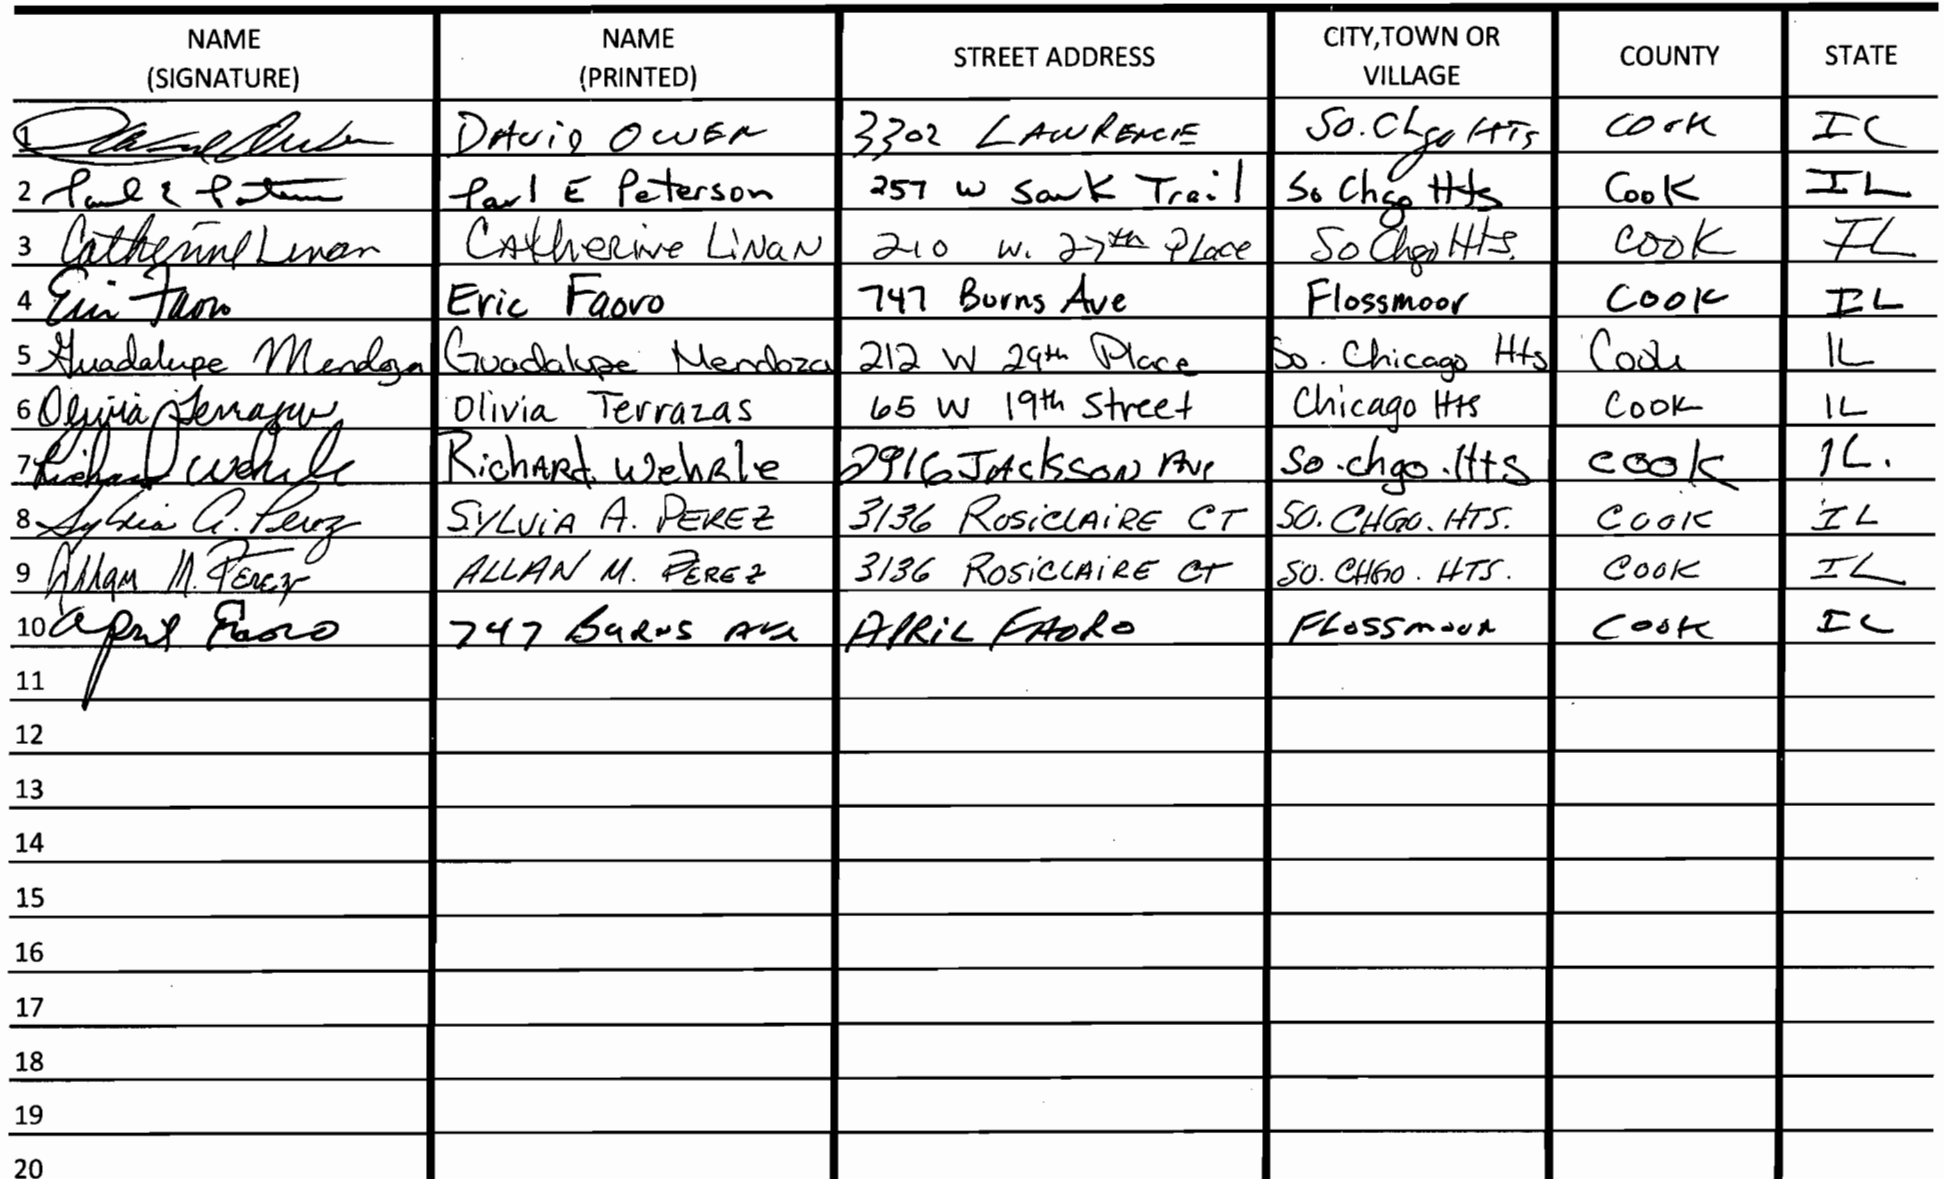 NAME (SIGNATURE) NAME (PRINTED) STREET ADDRESS CITY,TOWN OR VILLAGE COUNTY STATE
1 DAVID OWEN 3302 LAWRENCE So. Chgo HTs COOK IL
2 Paul E Peterson Paul E Peterson 257 W Sauk Trail So Chgo Hts Cook IL
3 Catherine Linan CAtherine LiNAN 210 w. 27th PLace So Chgo Hts. COOK IL
4 Eric Faoro Eric Faoro 747 Burns Ave Flossmoor COOK IL
5 Guadalupe Mendoza Guadalupe Mendoza 212 W 29th Place So. Chicago Hts Cook IL
6 Olivia Terrazas Olivia Terrazas 65 W 19th Street Chicago Hts Cook IL
7 Richard Wehrle RicHARd WehRle 2916 JAckson Ave So.chgo.Hts cook IL.
8 Sylvia A. Perez SYLViA A. PEREZ 3136 ROSiCLAiRE CT SO. CHGO. HTS. COOK IL
9 Allan M. Perez ALLAN M. PEREZ 3136 ROSiCLAiRE CT SO. CHGO. HTS. COOK IL
10 April Faoro 747 BURNS AVE APRiL FAORO FLOSSMOOR COOK IL
11
12
13
14
15
16
17
18
19
20